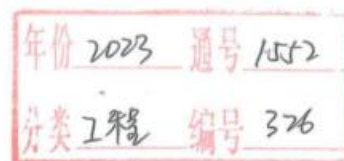 年份 2023 通号 1552
分类 工程 编号 326